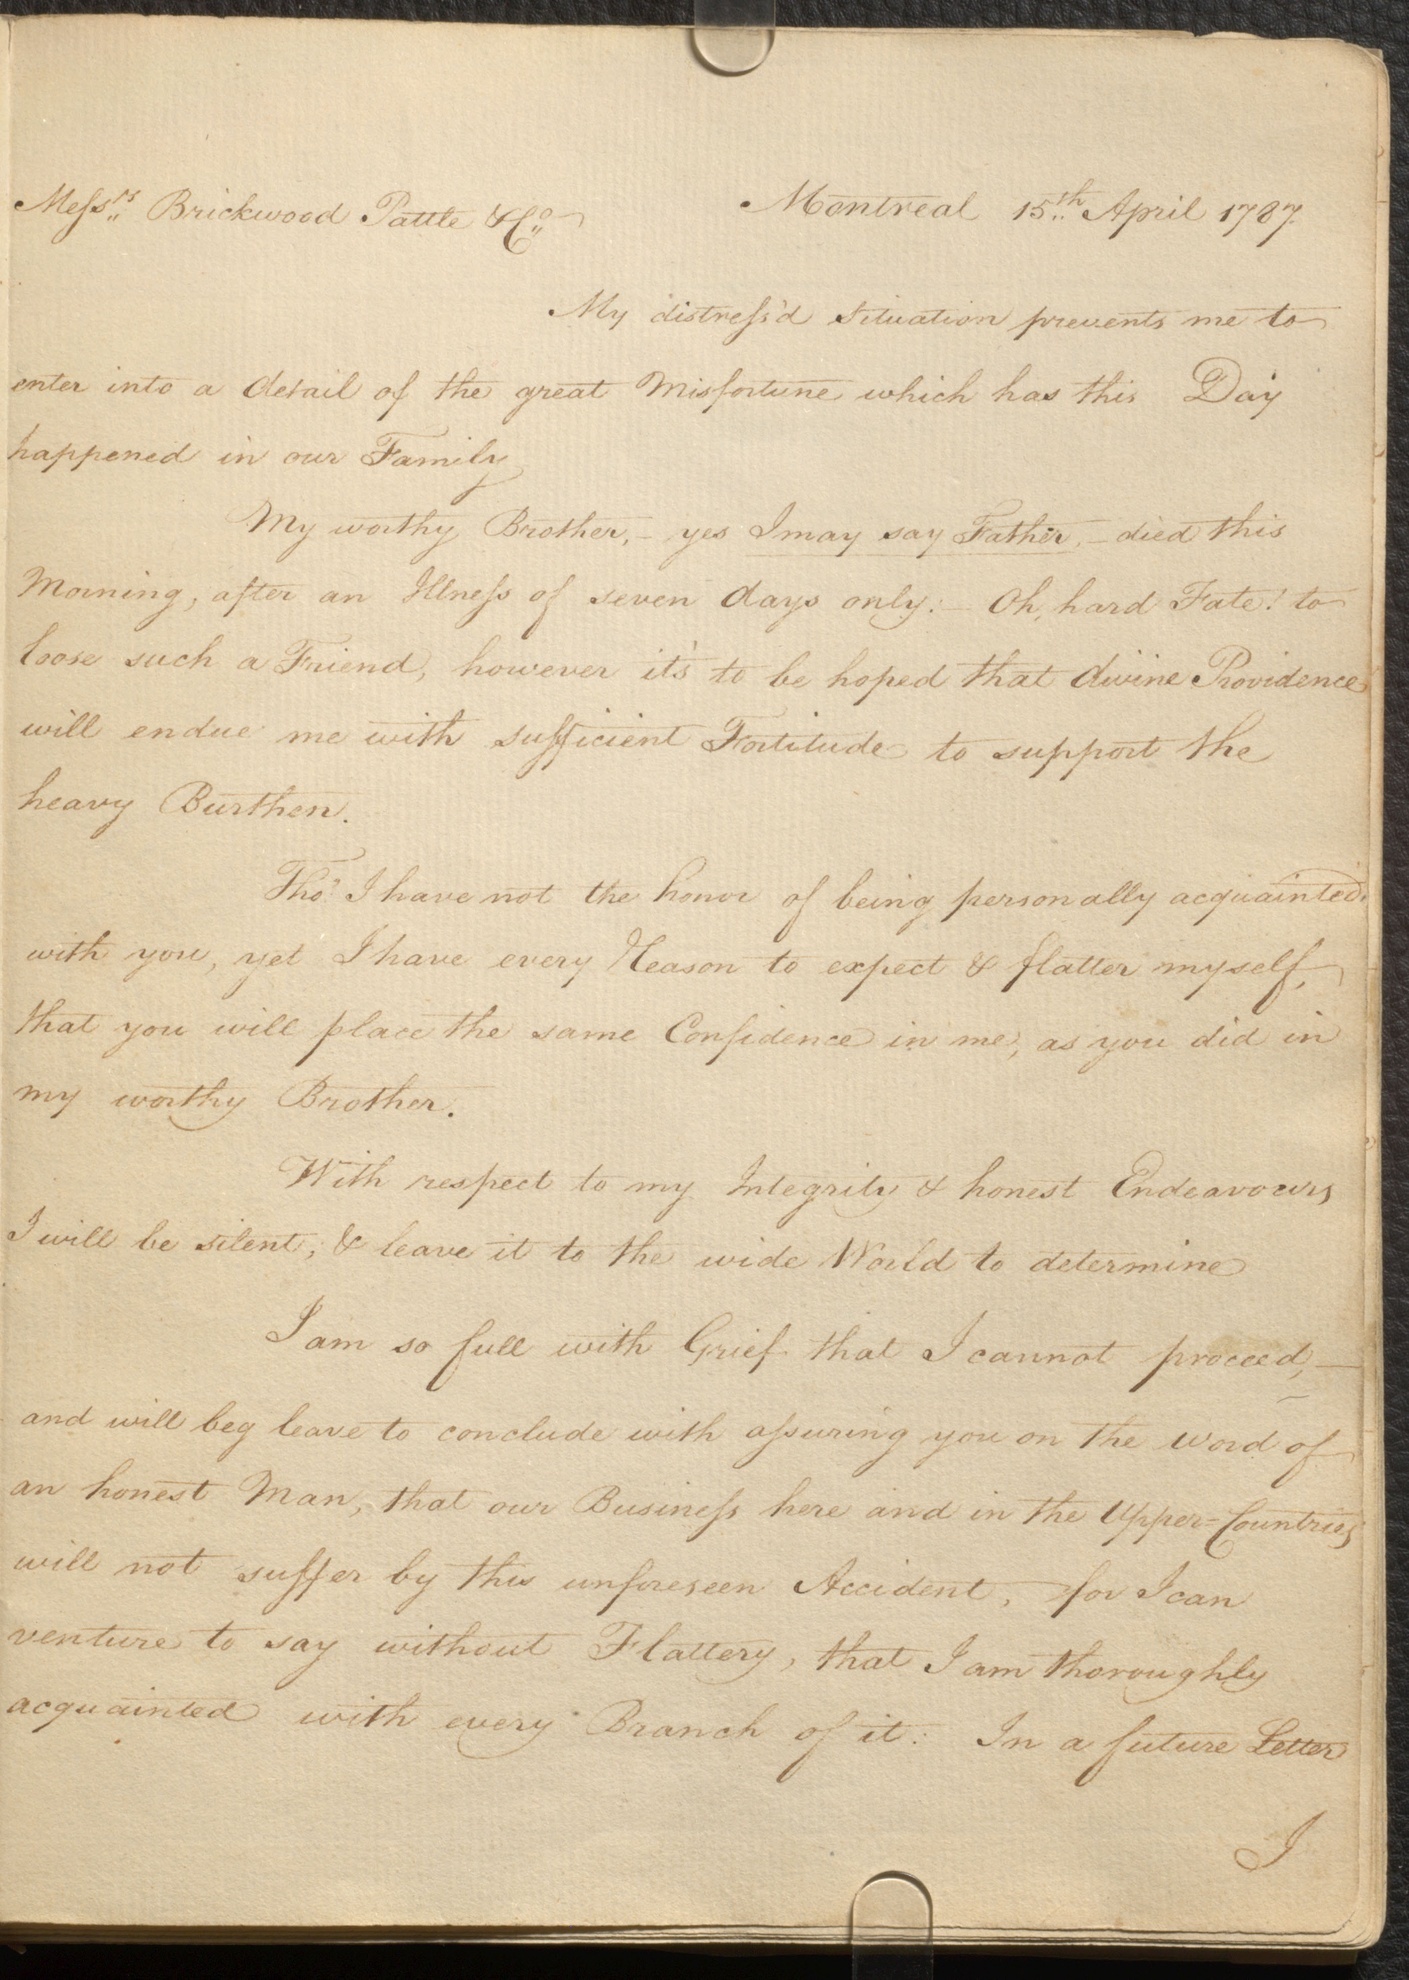 Messrs Brickwood Pattle & Co
Montreal 15th April 1787.
My distress'd situation prevents me to
enter into a detail of the great Misfortune which has this Day
happened in our Family
My worthy Brother, – yes I may say Father, – died this
Morning, after an Illness of seven days only: – Oh, hard Fate! to
loose such a Friend, however it's to be hoped that divine Providence
will endue me with sufficient Fortitude to support the
heavy Burthen.
Tho' I have not the honor of being personally acquainted
with you, yet I have every Reason to expect & flatter myself,
that you will place the same Confidence in me, as you did in
my worthy Brother.
With respect to my Integrity & honest Endeavours
I will be silent, & leave it to the wide World to determine
I am so full with Grief that I cannot proceed, –
and will beg leave to conclude with assuring you on the word of
an honest Man, that our Business here and in the Upper=Countries
will not suffer by this unforeseen Accident, for I can
venture to say without Flattery, that I am thoroughly
acquainted with every Branch of it: In a future Letter
I